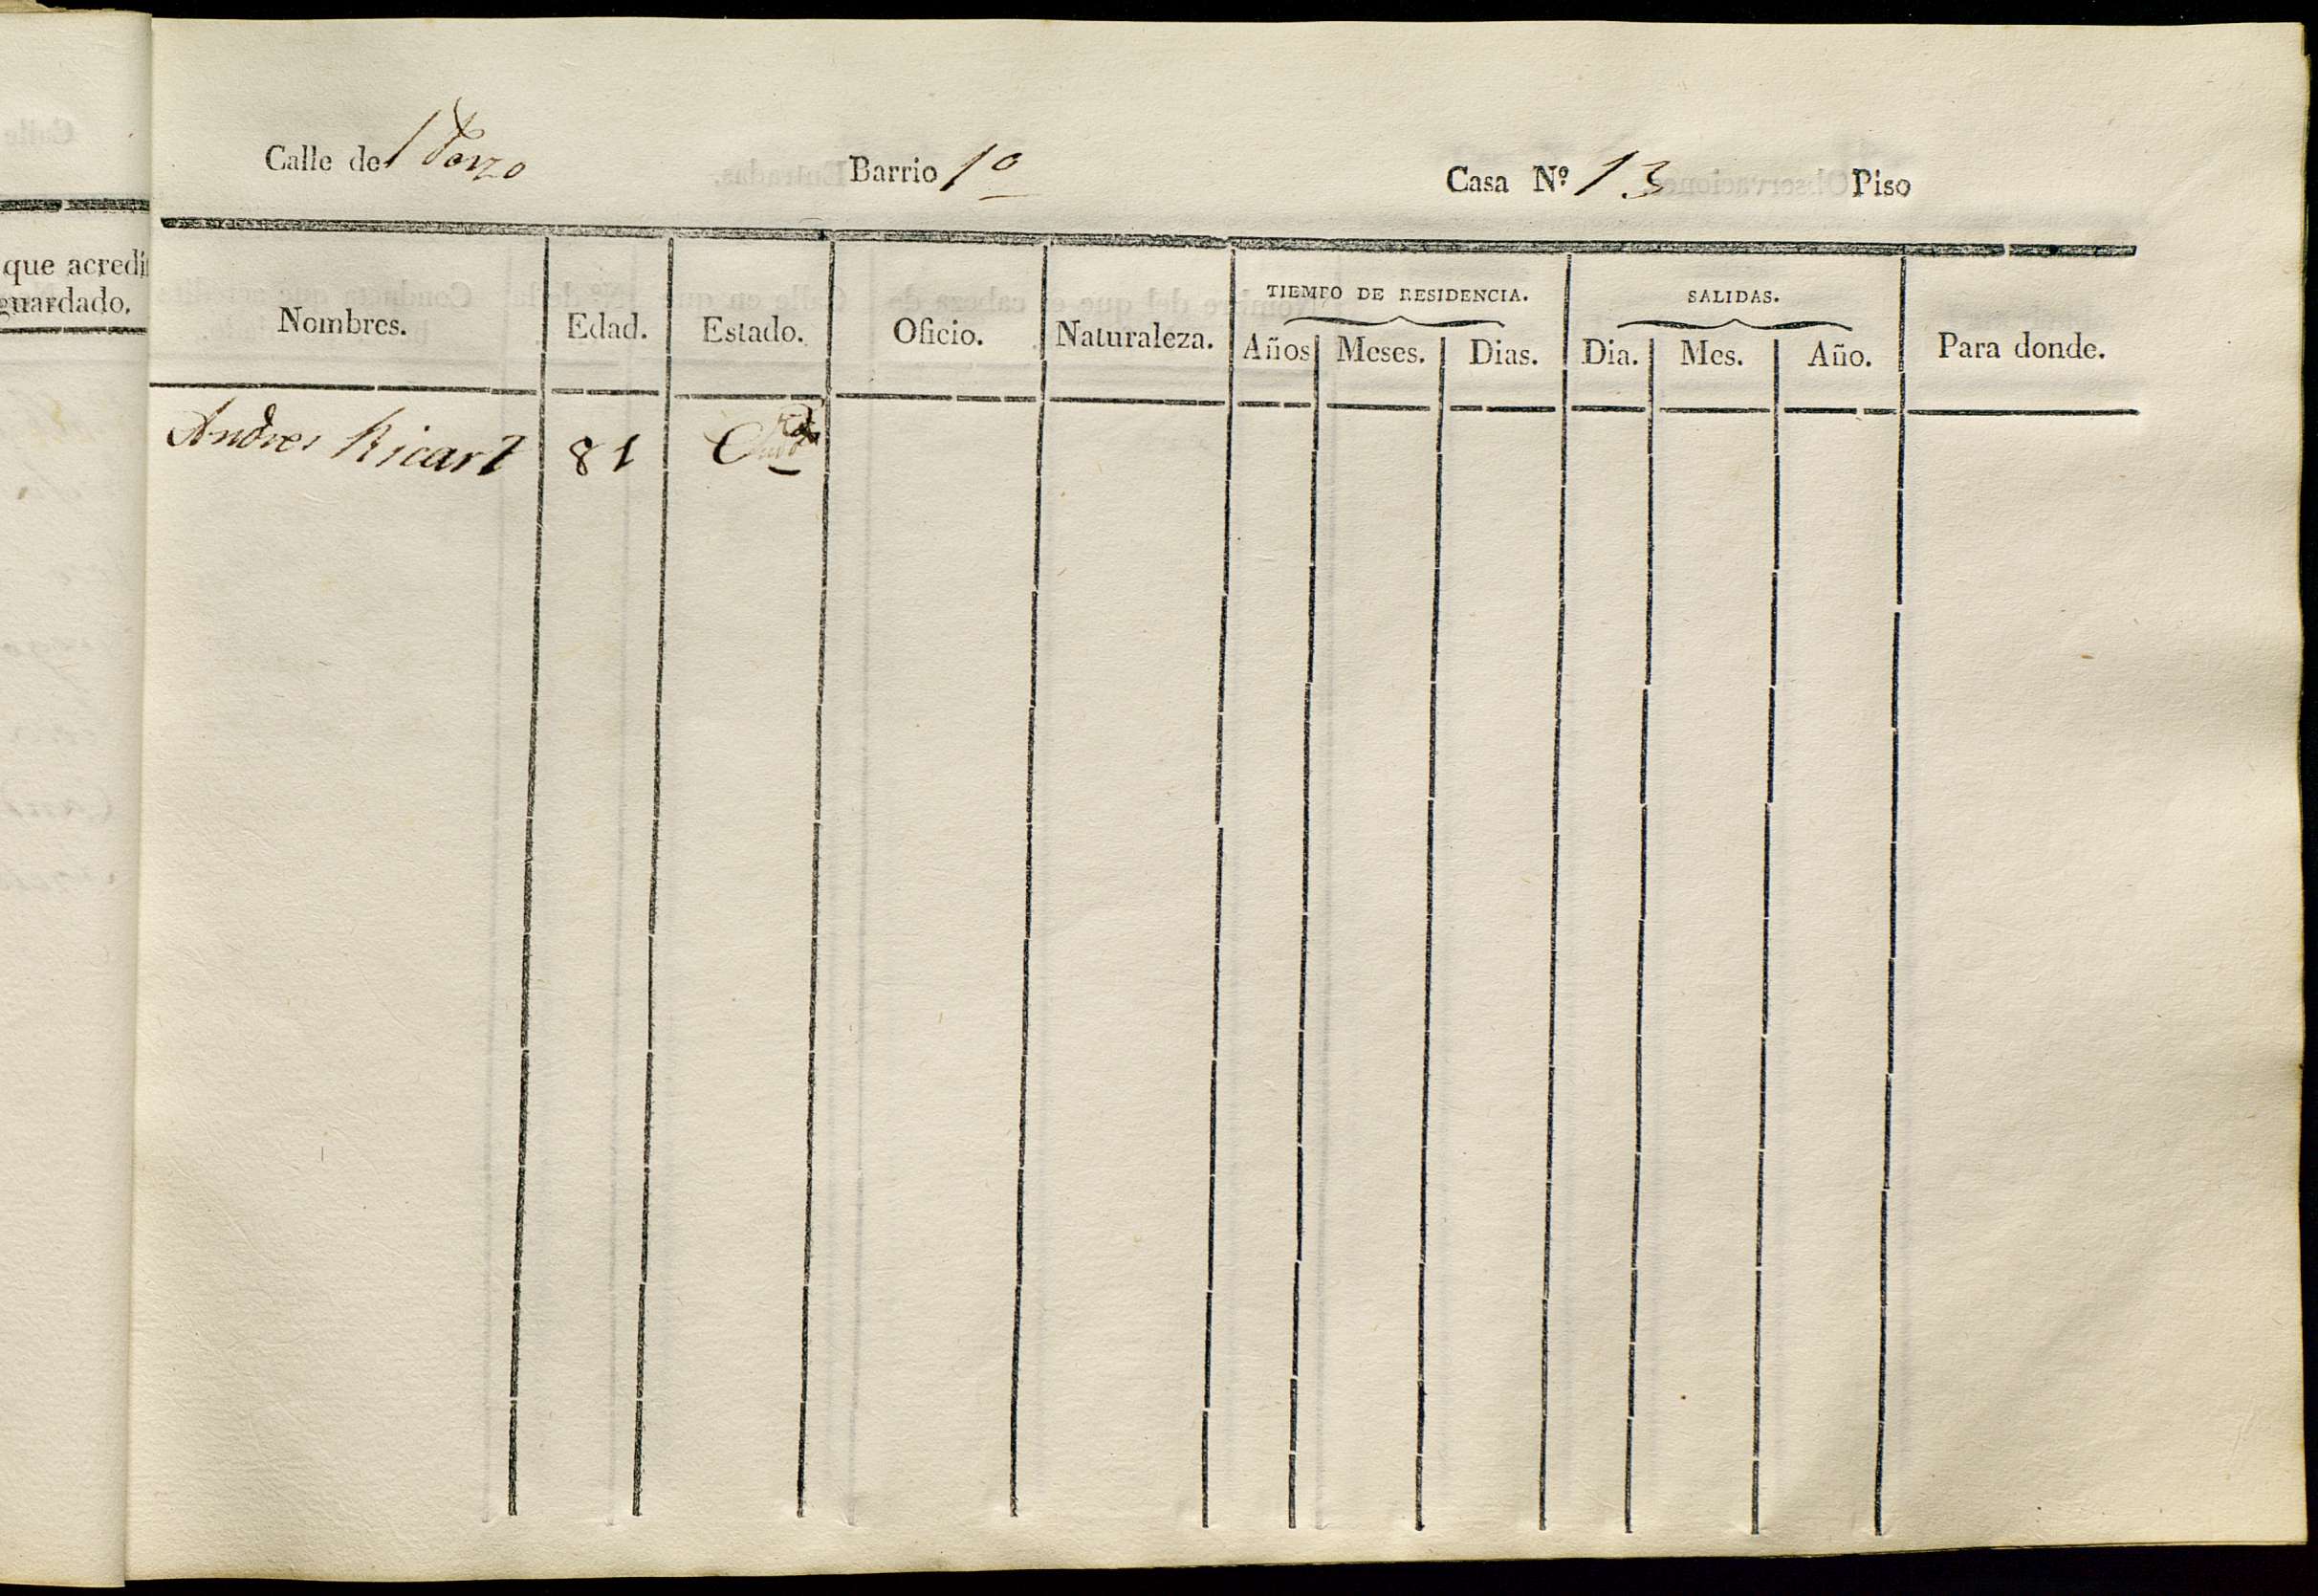 Calle de Barrio 1º Casa Nº 13 Piso
que acredi
guardado.
TIEMPO DE RESIDENCIA. SALIDAS.
Nombres. Edad. Estado. Oficio. Naturaleza. Años Meses. Dias. Dia. Mes. Año. Para donde.
Andres Ricart 81